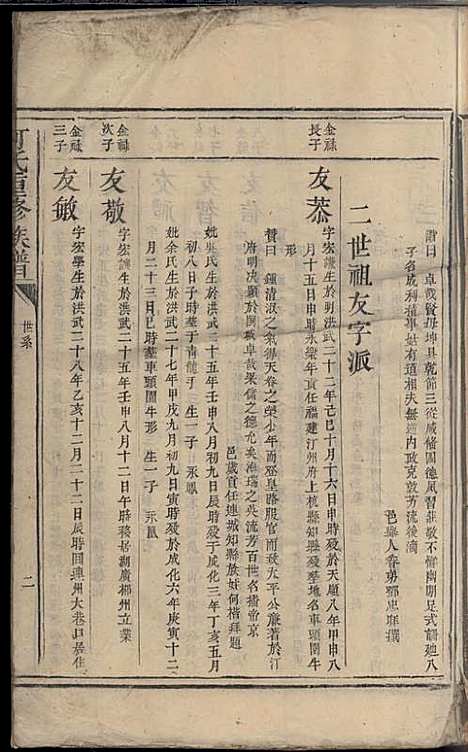 讚曰 卓哉賢母坤具乾節三從咸備團德夙習莊敬不懈幽閒足式訓廸八
子各成利植學姑有道相夫無違內政克敦芳流後裔
邑舉人眷男鄧忠拜撰
二世祖友字派
金祿長子
友恭
字宏謙生於明洪武二十二年己巳十月十六日申時歿於天順八年甲申八
月十五日申時永樂年貢任福建汀州府上杭縣知縣歿塟地名車頭岡牛
形
贊曰 鍾清淑之氣得天眷之榮少年而登皇路服官而效太平公廉著於汀
府明决顯於閩城卓哉果備之德允矣海瑞之吳流芳百世名播帝京
邑歲貢任連城知縣放妖何楷拜題
妣吳氏生於洪武二十五年壬申八月初九日辰時歿于成化三年丁亥五月
初八日子時塟于青龍丁 生一子 永鳳
妣余氏生於洪武二十七年甲戌九月初九日寅時歿於成化六年庚寅十二
月二十三日巳時塟車頭岡牛形 生一子 永鳳
金祿次子
友敬
字宏讓生於洪武二十五年壬申八月十二日午時移居湖廣郴州立業
金祿三子
友敏
字宏學生於洪武二十八年乙亥十二月二十二日辰時回連州大巷口居住
氏重修族譜
世系
二